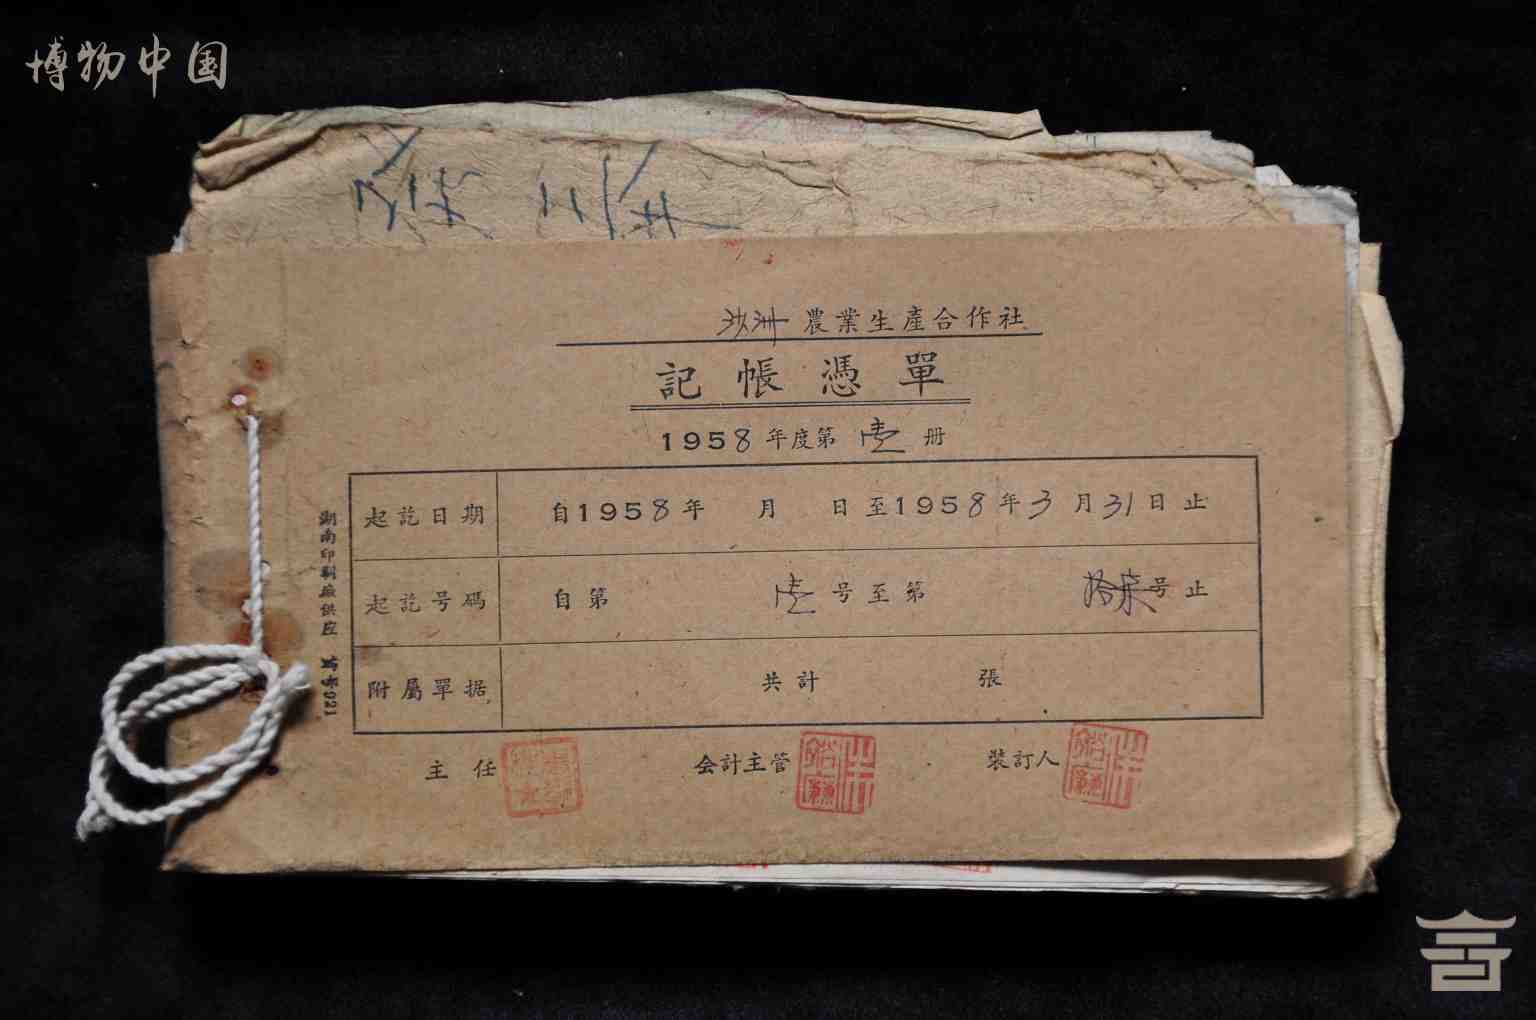 博物中国
沙洲農業生產合作社
記帳憑單
1958年度第壹册
起訖日期 自1958年 月 日至1958年3月31日止
起訖号碼 自第壹号至第拾柒号止
附屬單据 共計 張
主任 会計主管 裝訂人
湖南印制廠供应 貨号021